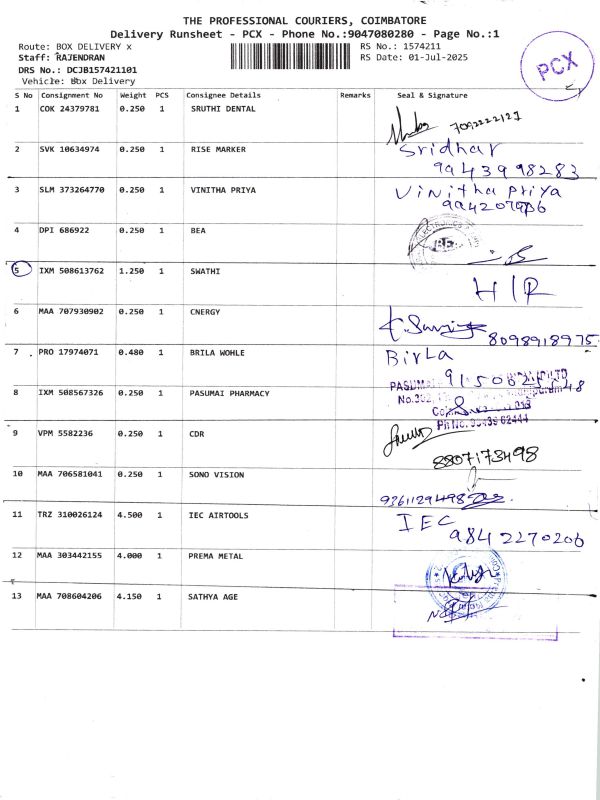 THE PROFESSIONAL COURIERS, COIMBATORE
Delivery Runsheet - PCX - Phone No.:9047080280 - Page No.:1
Route: BOX DELIVERY x
Staff: RAJENDRAN
DRS No.: DCJB157421101
Vehicle: Box Delivery
RS No.: 1574211
RS Date: 01-Jul-2025
PCX
S No Consignment No Weight PCS Consignee Details Remarks Seal & Signature
1 COK 24379781 0.250 1 SRUTHI DENTAL
2 SVK 10634974 0.250 1 RISE MARKER Sridhar
9443998283
3 SLM 373264770 0.250 1 VINITHA PRIYA Vinitha Priya
4 DPI 686922 0.250 1 BEA
5 IXM 508613762 1.250 1 SWATHI H/R
6 MAA 707930902 0.250 1 CNERGY 8098918975
7 PRO 17974071 0.480 1 BRILA WOHLE BirLa
8 IXM 508567326 0.250 1 PASUMAI PHARMACY
9 VPM 5582236 0.250 1 CDR
8807173498
10 MAA 706581041 0.250 1 SONO VISION
9361129498
11 TRZ 310026124 4.500 1 IEC AIRTOOLS IEC
9842270206
12 MAA 303442155 4.000 1 PREMA METAL
13 MAA 708604206 4.150 1 SATHYA AGE